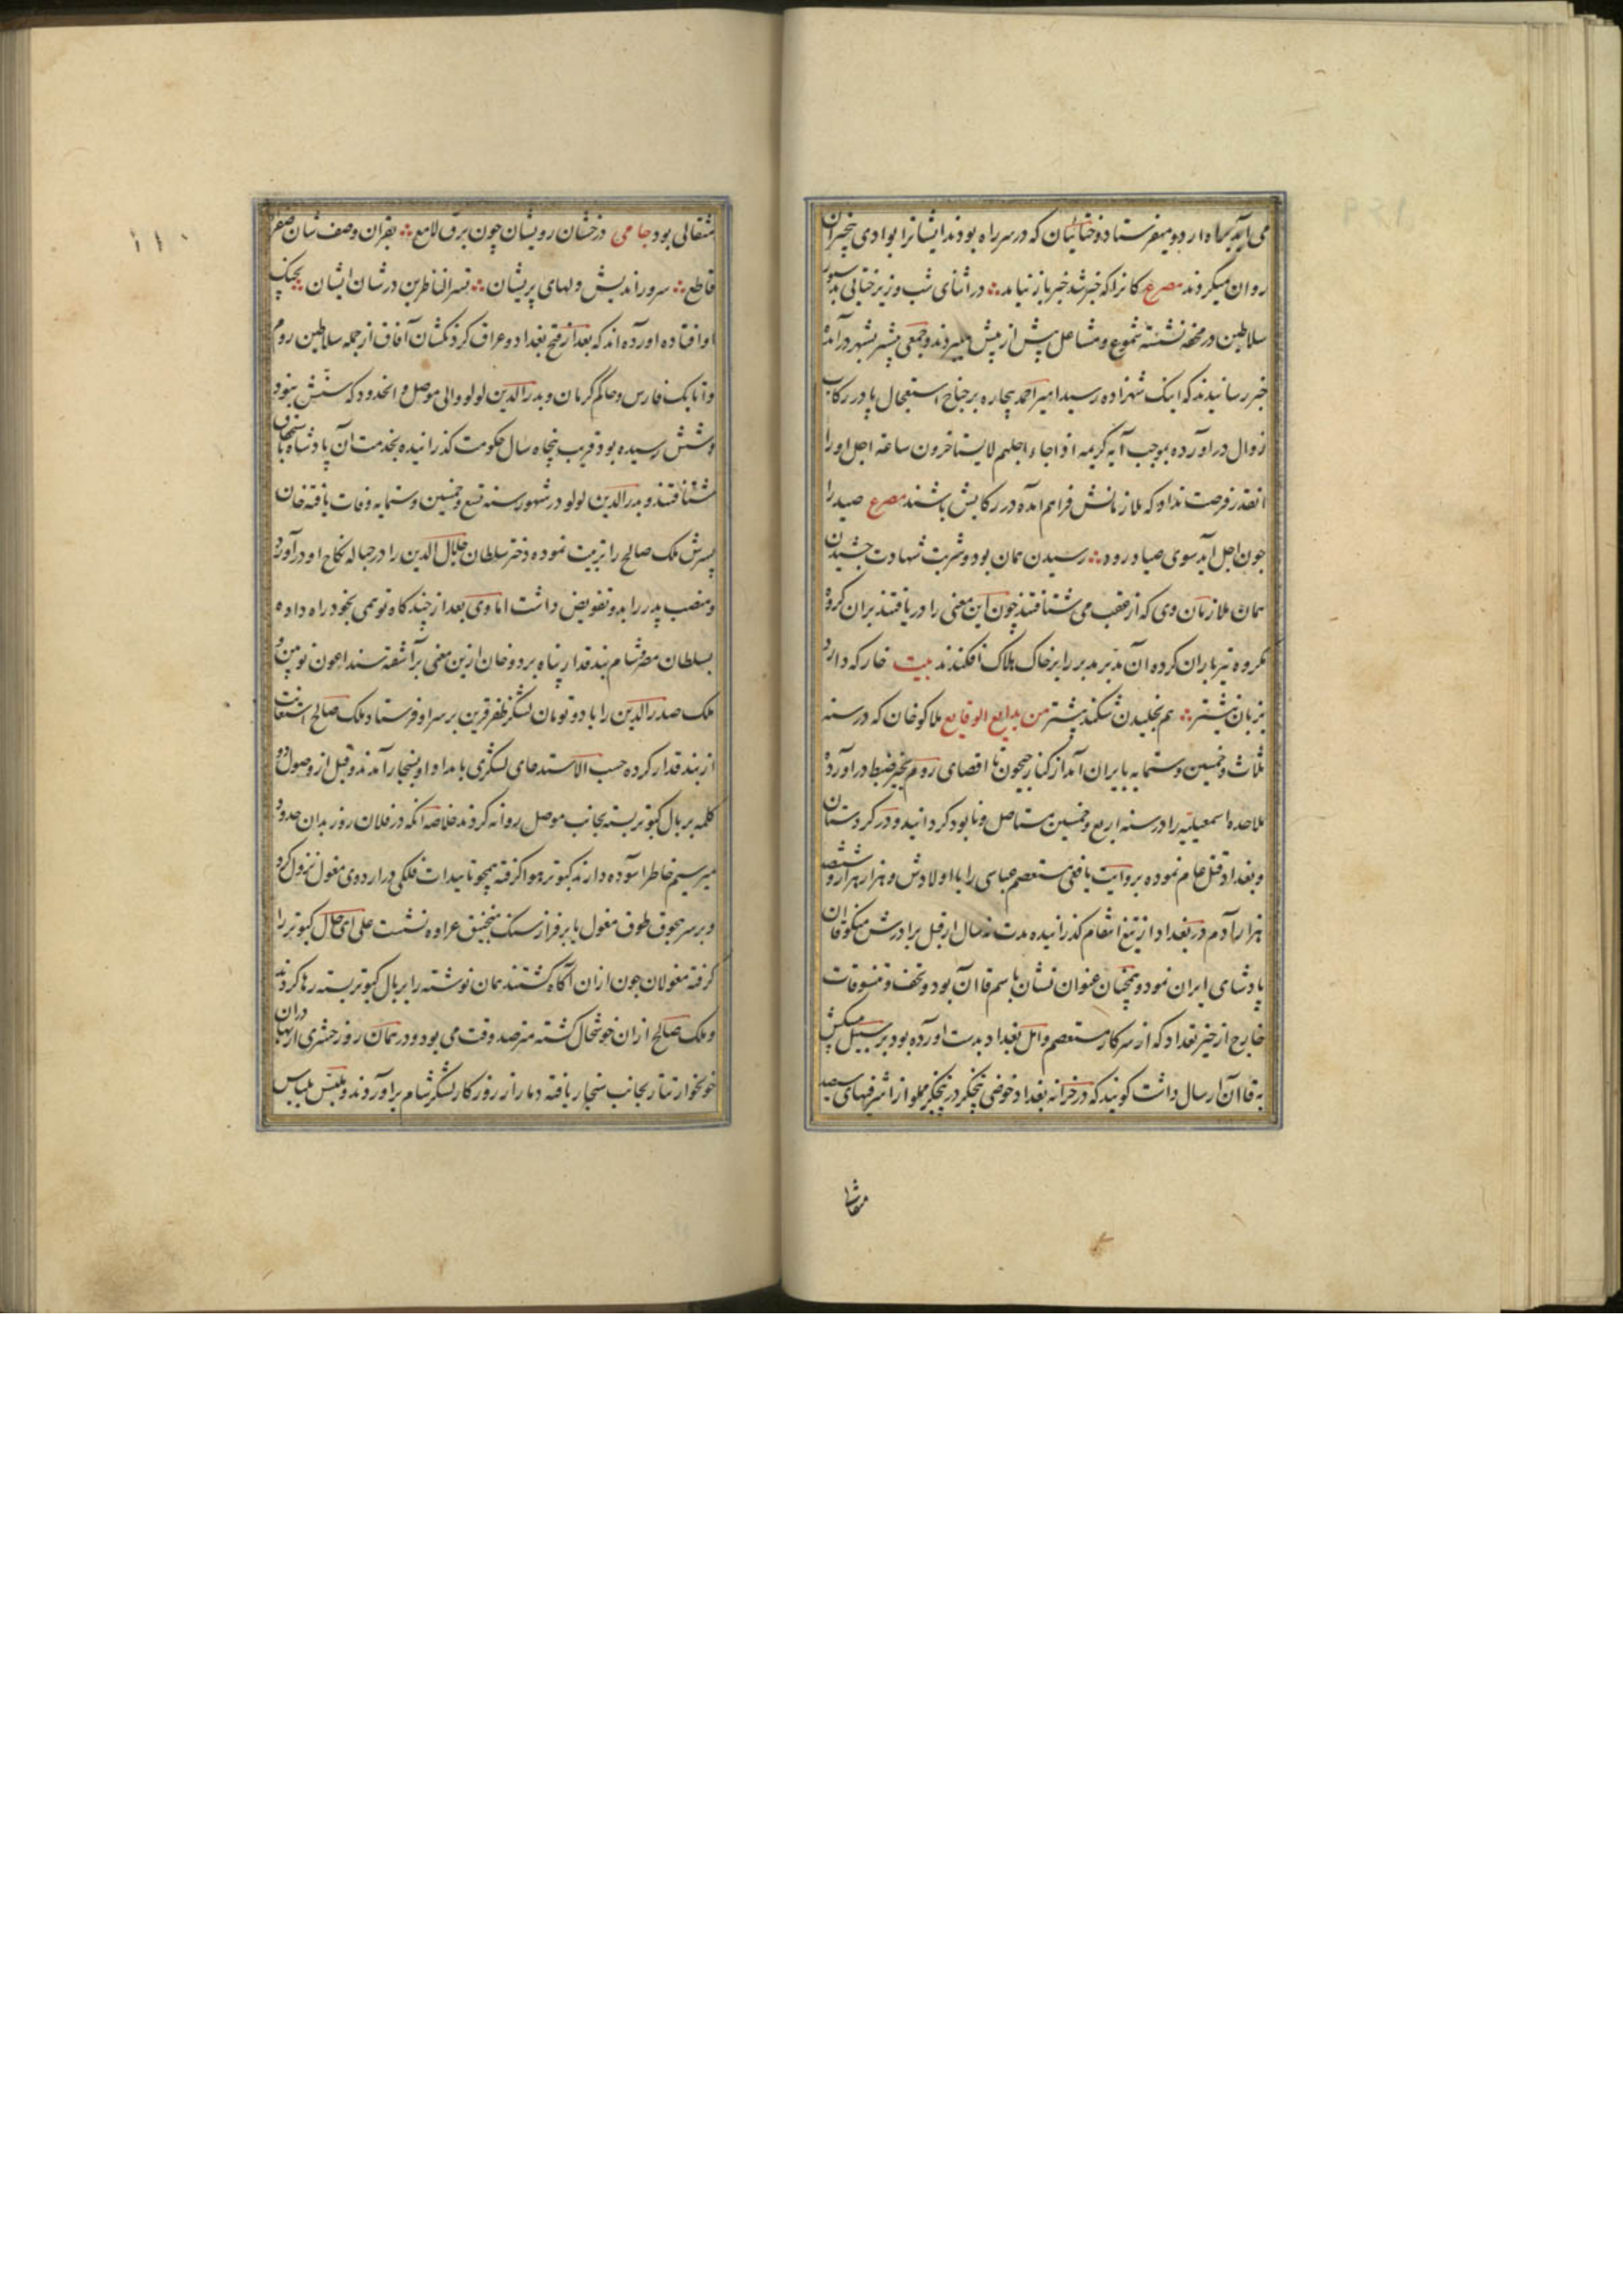 می آید براه اردو میفرستاد و ختائیان که در سر راه بودند ایشانرا بوادی بیخبران
روان میکردند مصرع کانرا که خبر شد خبر باز نیامد در اثنای شب وزیر ختایی بدستور
سلاطین در محفه نشسته شموع و مشاعل پیش از پیش میبردند و جمعی پیشتر بشهر درآمده
خبر رسانیدند که اینک شهزاده رسید امیر احمد بیچاره بر جناح استعجال پا در رکاب
زوال در آورده بموجب آیه کریمه اذا جاء اجلهم لا یستاخرون ساعة اجل او را
انقدر فرصت نداد که ملازمانش فراهم آمده در رکابش باشند مصرع صید را
چون اجل آید سوی صیاد رود رسیدن همان بود و شربت شهادت چشیدن
همان ملازمان وی که از عقب می شتافتند چون این معنی را دریافتند بران گروه
مکروه تیرباران کرده آن مدبر مدبر را بر خاک هلاک افکندند بیت خار که دارد
بزبان نیشتر هم بخلیدن شکند بیشتر من بدایع الوقایع هلاکوخان که در سنه
ثلاث و خمسین و ستمایه بایران آمد از کنار جیحون تا اقصای روم بحیز ضبط درآورده
ملاحده اسمعیلیه را در سنه اربع و خمسین مستاصل و نابود گردانید و در کردستان
و بغداد قتل عام نموده بروایت یافعی مستعصم عباسی را با اولادش و هزار هزار و ششصد
هزار آدم در بغداد از تیغ انتقام گذرانیده مدت نه سال از قبل برادرش منکوقاآن
پادشاهی ایران نمود و همچنان عنوان نشان باسم قاآن بود و تحف و تنسوقات
خارج از حیز تعداد که از سرکار مستعصم و اهل بغداد بدست آورده بود بر سبیل پیشکش
به قاآن ارسال داشت گویند که در خزانه بغداد حوضی پنجگز در پنجگز مملو از اشرفیهای سیصد
مثقالی
مثقالی بود جامی درخشان رویشان چون برق لامع بقران وصف شان
قاطع سرور اندیش دلهای پریشان تسر الناظرین در شان ایشان بچنک
او افتاده آورده اند که بعد از فتح بغداد و عراق گردنکشان آفاق از جمله سلاطین روم
و اتابک فارس و حاکم کرمان و بدرالدین لولو والی موصل و الحدود که سنش بنود
و شش رسیده بود قریب پنجاه سال حکومت گذرانیده بخدمت آن پادشاه
شتافتند و بدرالدین لولو در شهور سنه تسع و خمسین و ستمایه وفات یافته خان
پسرش ملک صالح را تربیت نموده دختر سلطان جلال الدین را در حباله نکاح او درآورد
و منصب پدر را بدو تفویض داشت اما وی بعد از چندگاه توهمی بخود راه داده
بسلطان مصر و شام بندقدار پناه برد و خان ازین معنی برآشفته سنداغون نویین و
ملک صدرالدین را با دو تومان لشکر ظفر قرین بر سر او فرستاد و ملک صالح استعانت
از بندقدار کرده حسب الاستدعای لشکری بامداد او بسنجار آمدند و قبل از وصول دو
کلمه بر بال کبوتر بسته بجانب موصل روانه کردند خلاصه آنکه در فلان روز بدان حدود
میرسیم خاطر آسوده دارند کبوتر هوا گرفته همچو تاییدات فلکی در اردوی مغول نزول کرد
و بر سر طوف مغول یا بر فراز سنگ منجنیق عراده نشست علی ای حال کبوتر را
گرفته مغولان چون ازان آگاه گشتند همان نوشته را بر بال کبوتر بسته رها کردند
و ملک صالح ازان خوشحال گشته مترصد وقت می بود و در همان روز حشری ازان
خونخوار تتار بجانب سنجار یافته دمار از روزگار لشکر شام برآوردند و ملبس بلباس